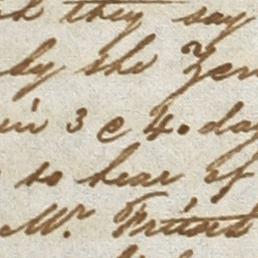 they say
by the
in 3 @ 4. day
so hear of
Mr. Friend